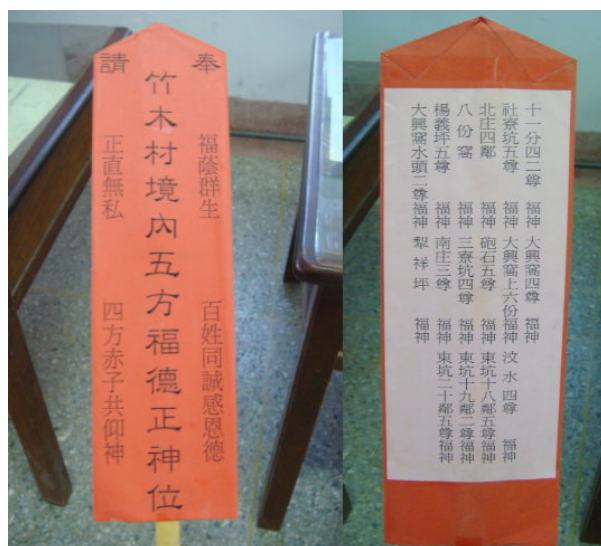 奉請
福蔭群生 百姓同誠感恩德
竹木村境內五方福德正神位
正直無私 四方赤子共仰神
十一分四二尊 福神 大興窩四尊 福神
社寮坑五尊 福神 大興窩上六份福神 汶水四尊 福神
北庄四鄰 福神 砲石五尊 福神 東坑十八鄰五尊福神
八份窩 福神 三寮坑四尊 福神 東坑十九鄰二尊福神
楊義坪五尊 福神 南庄三尊 福神 東坑二十鄰五尊福神
大興窩水頭二尊福神 犁祥坪 福神